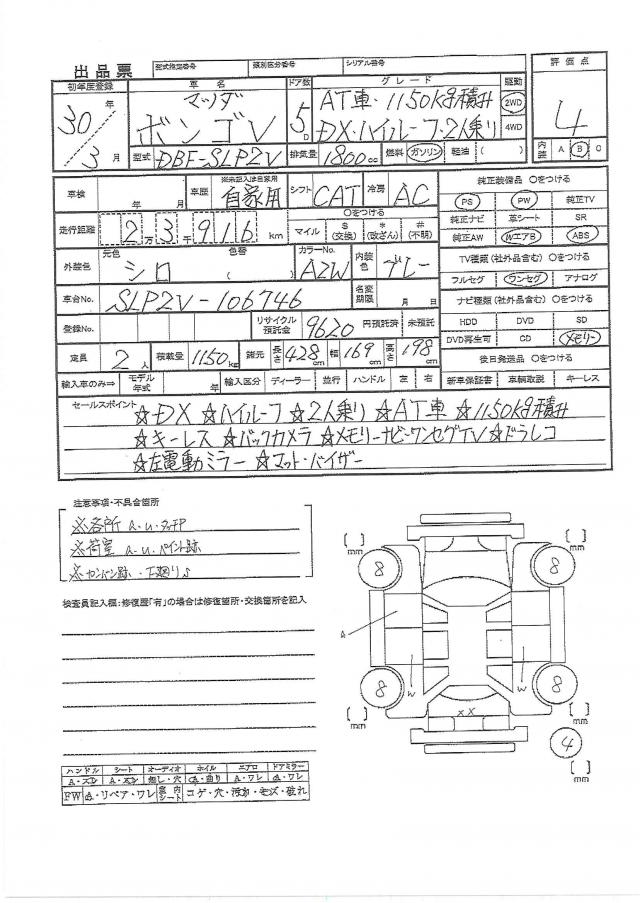 出品票 型式指定番号 類別区分番号 シリアル番号 評価点
初年度登録 車名 ドア数 グレード 駆動
30年 マツダ 5D AT車・1150kg積み 2WD 4
3月 ボンゴV DX・ハイルーフ・2人乗り 4WD
型式 DBF-SLP2V 排気量 1800cc 燃料 ガソリン 軽油 ( ) 内装 A B C
車検 年 月 車歴 ※未記入は自家用 自家用 シフト CAT 冷房 AC 純正装備品 〇をつける
〇をつける PS PW 純正TV
走行距離 2万3千916km マイル $(交換) *(改ざん) #(不明) 純正ナビ 革シート SR
純正AW WエアB ABS
外装色 元色 シロ 色替 ( ) カラーNo. A2W 内装色 グレー TV種類(社外品含む) 〇をつける
フルセグ ワンセグ アナログ
車台No. SLP2V-106746 名変期限 月 日 ナビ種類(社外品含む) 〇をつける
登録No. リサイクル預託金 9620 円預託済 未預託 HDD DVD SD
DVD再生可 CD メモリー
定員 2人 積載量 1150kg 諸元 長さ 428cm 幅 169cm 高さ 198cm 後日発送品 〇をつける
輸入車のみ⇒ モデル年式 年 輸入区分 ディーラー 並行 ハンドル 左 右 新車保証書 車輌取説 キーレス
セールスポイント ☆DX ☆ハイルーフ ☆2人乗り ☆AT車 ☆1150kg積み
☆キーレス ☆バックカメラ ☆メモリーナビ・ワンセグTV ☆ドラレコ
☆左電動ミラー ☆マット・バイザー
注意事項・不具合箇所
※各所 A.U.
※荷室 A.U.ペイント跡
検査員記入欄:修復歴「有」の場合は修復箇所・交換箇所を記入
[ ] mm [ ] mm
8 8
A
W W
8 8
XX
[ ] mm [ ] mm
4
[ ] mm
ハンドル シート オーディオ ホイル エアロ ドアミラー
A・スレ A・スレ 無し・穴 A・曲り A・ワレ A・ワレ
FW A・リペア・ワレ 室内シート コゲ・穴・汚れ・キズ・破れ